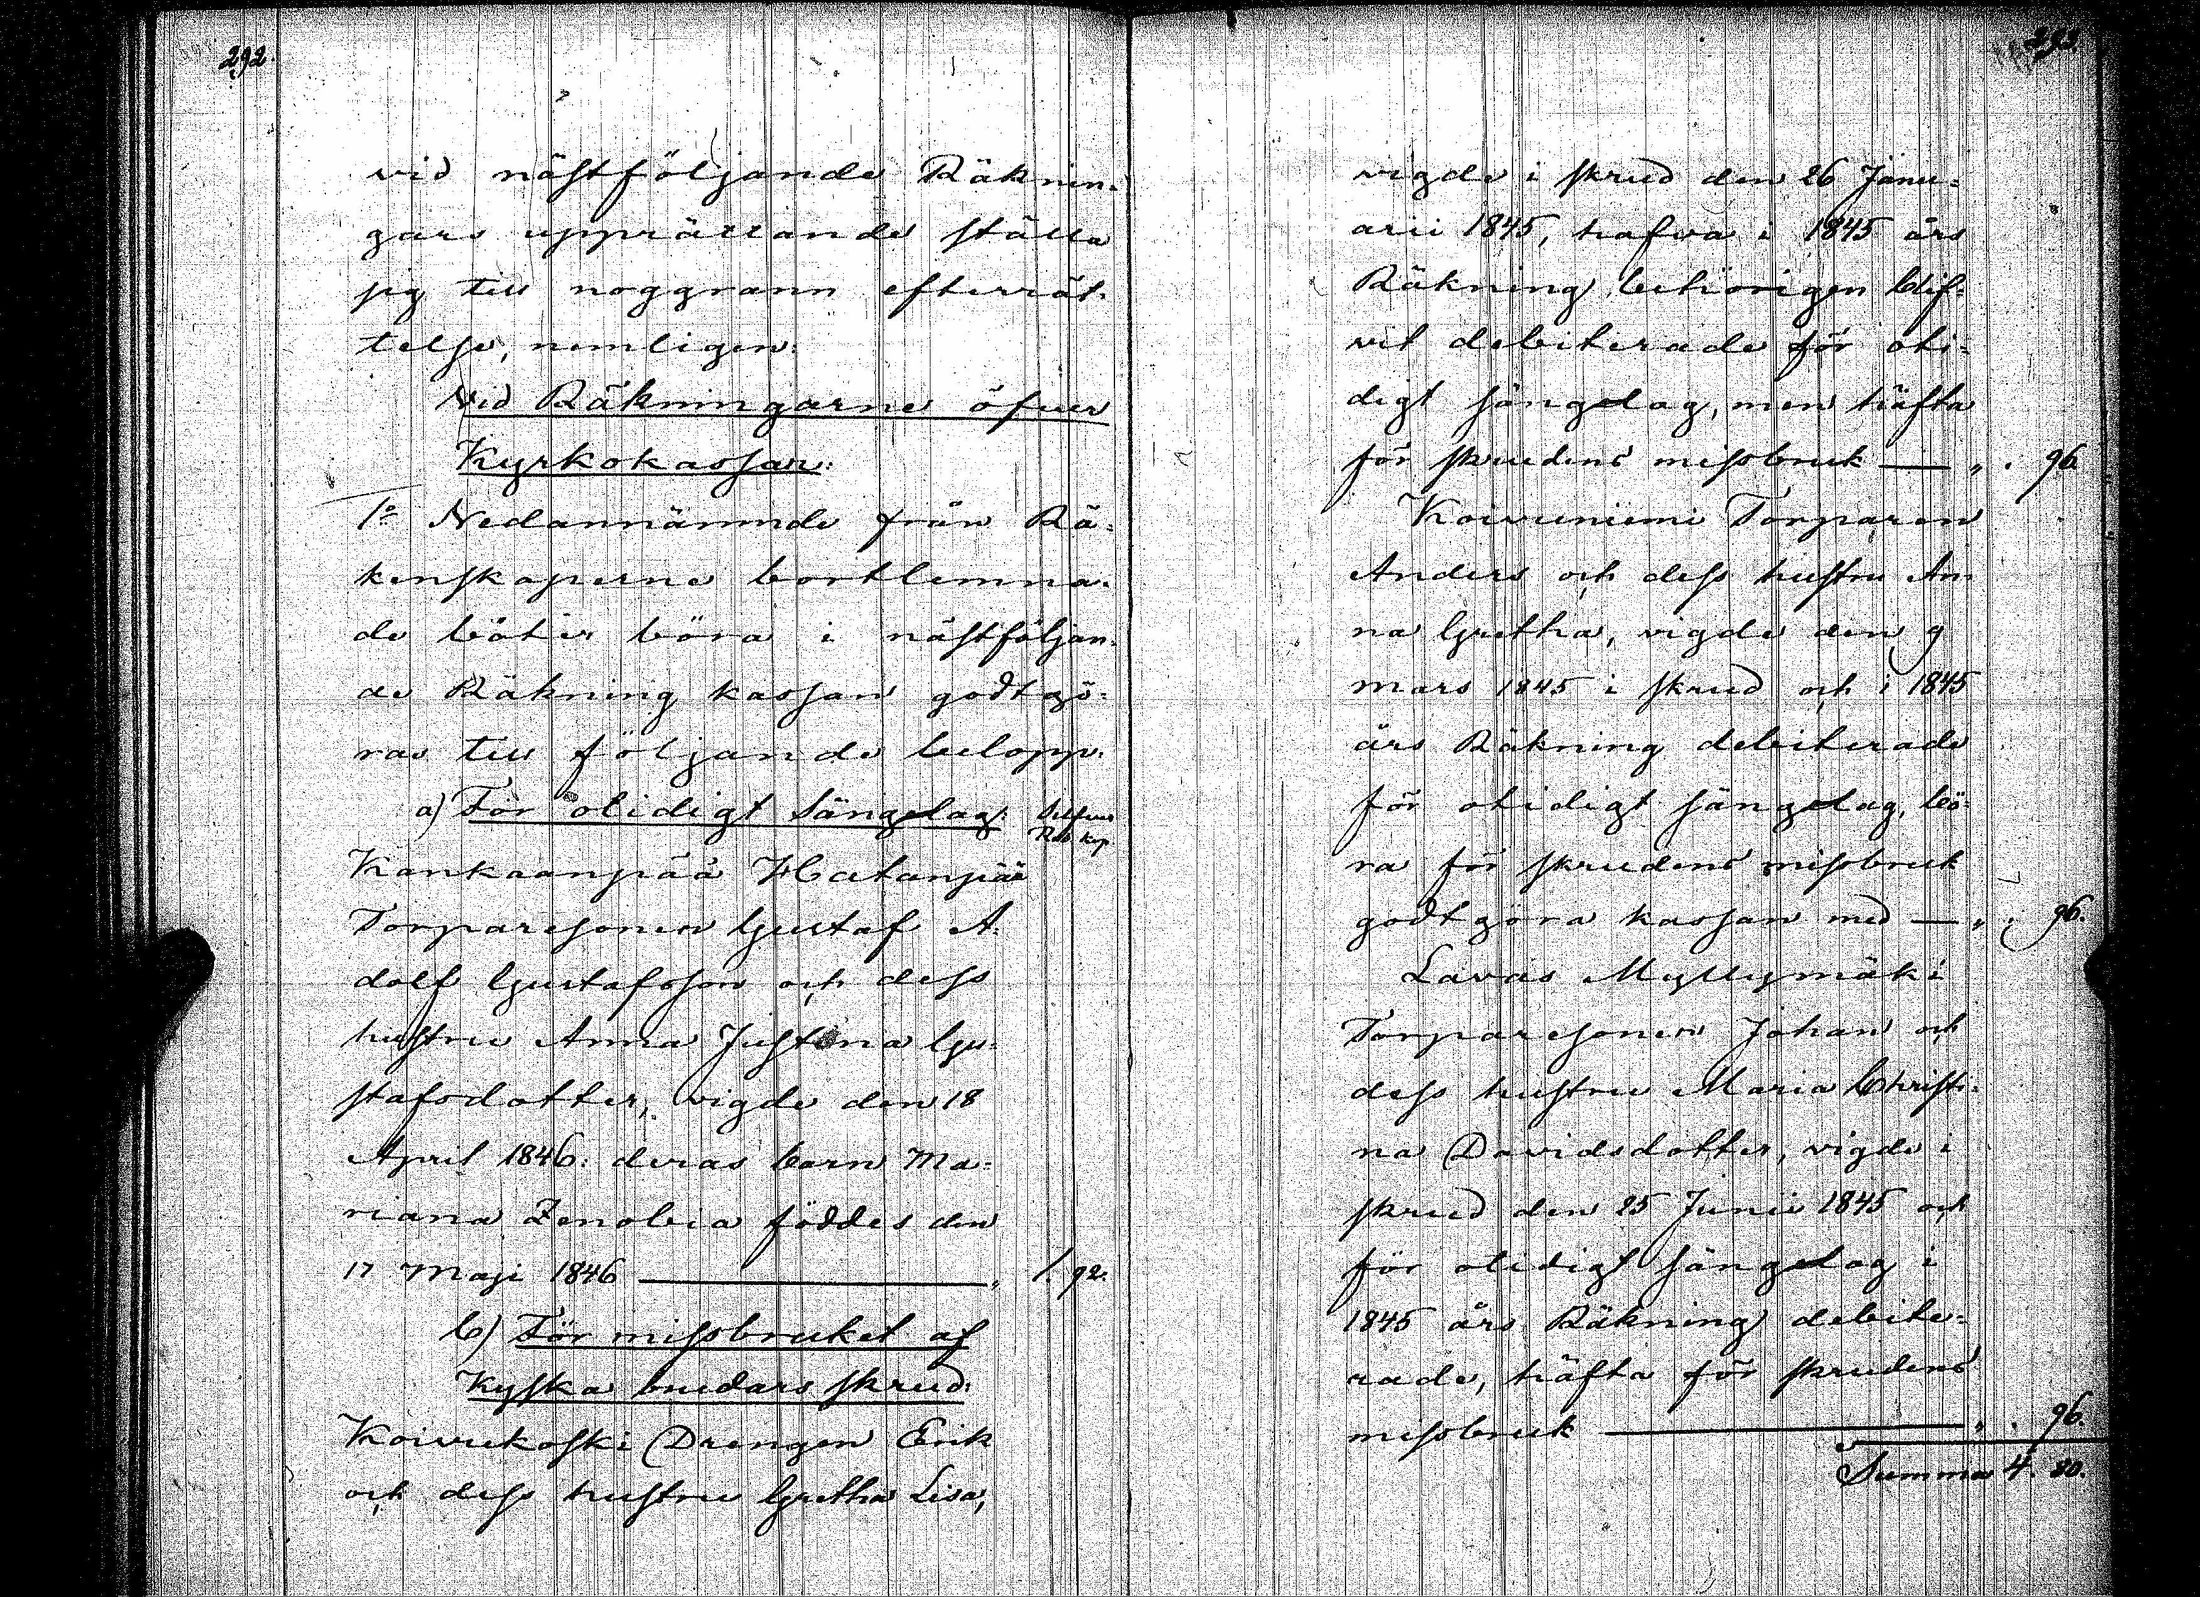 292.
vid nästföljande Räknin-
gars upprättande ställa
sig till noggrann efterrät-
telse, nemligen:
Vid Räkningarne öfwer
Kyrkokassan:
1º Nedannämnde från Rä-
kenskaperne bortlemna-
de böter böra i nästföljan-
de Räkning kassan godtgö-
ras till följande belopp:
a) För otidigt Sängelag: Silfwer
Rub. kop.
Kankaanpää Hatanpää
Torparesonen Gustaf A-
dolf Gustafsson och dess
hustru Anna Justina Gu-
stafsdotter, vigde den 18
April 1846: deras barn Ma-
riana Zenobia föddes den
17 Maji 1846 — „ 1. 92.
b) För missbruket af
Kyska brudars skrud:
Koivukoski Drengen Erik
och dess hustru Gretha Lisa,
293.
vigde i skrud den 26 Janu-
arii 1845, hafwa i 1845 års
Räkning behörigen blif-
vit debiterade för oti-
digt sängelag, men häfta
för skrudens missbruk — „ . 96.
Koivuniemi Torparen
Anders och dess hustru An-
na Gretha, vigde den 9
mars 1845 i skrud och i 1845
års Räkning debiterade
för otidigt sängelag, bö-
ra för skrudens missbruk
godtgöra kassan med — „ . 96.
Lavas Myllymäki
Torparesonen Johan och
dess hustru Maria Christi-
na Davidsdotter, vigde i
skrud den 25 Junii 1845 och
för otidigt sängelag i
1845 års Räkning debite-
rade, häfta för skrudens
missbruk — „ . 96.
Summa 4. 80.